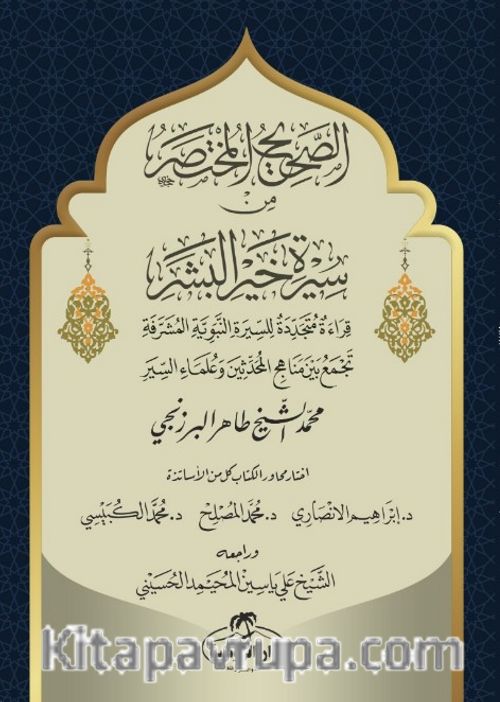 الصَّحِيحُ المُخْتَصَرُ
مِنْ
سِيْرَةِ خَيْرِ البَشَرِ
قِرَاءَةٌ مُتَجَدِّدَةٌ لِلسِّيرَةِ النَّبَوِيَّةِ المُشَرَّفَةِ
تَجْمَعُ بَيْنَ مَنَاهِجِ المُحَدِّثِينَ وَعُلَمَاءِ السِّيَرِ
محمد الشيخ طاهر البرزنجي
اختار محاور الكتاب كل من الأساتذة
د. إبْرَاهِيم الانْصَارِي د. مُحَمَّد المُصْلِح د. مُحَمَّد الكُبَيْسِي
وراجعه
الشَّيْخ عَلي يَاسِين المُحَيْمِد الحُسَيْنِي
kitapavrupa.com